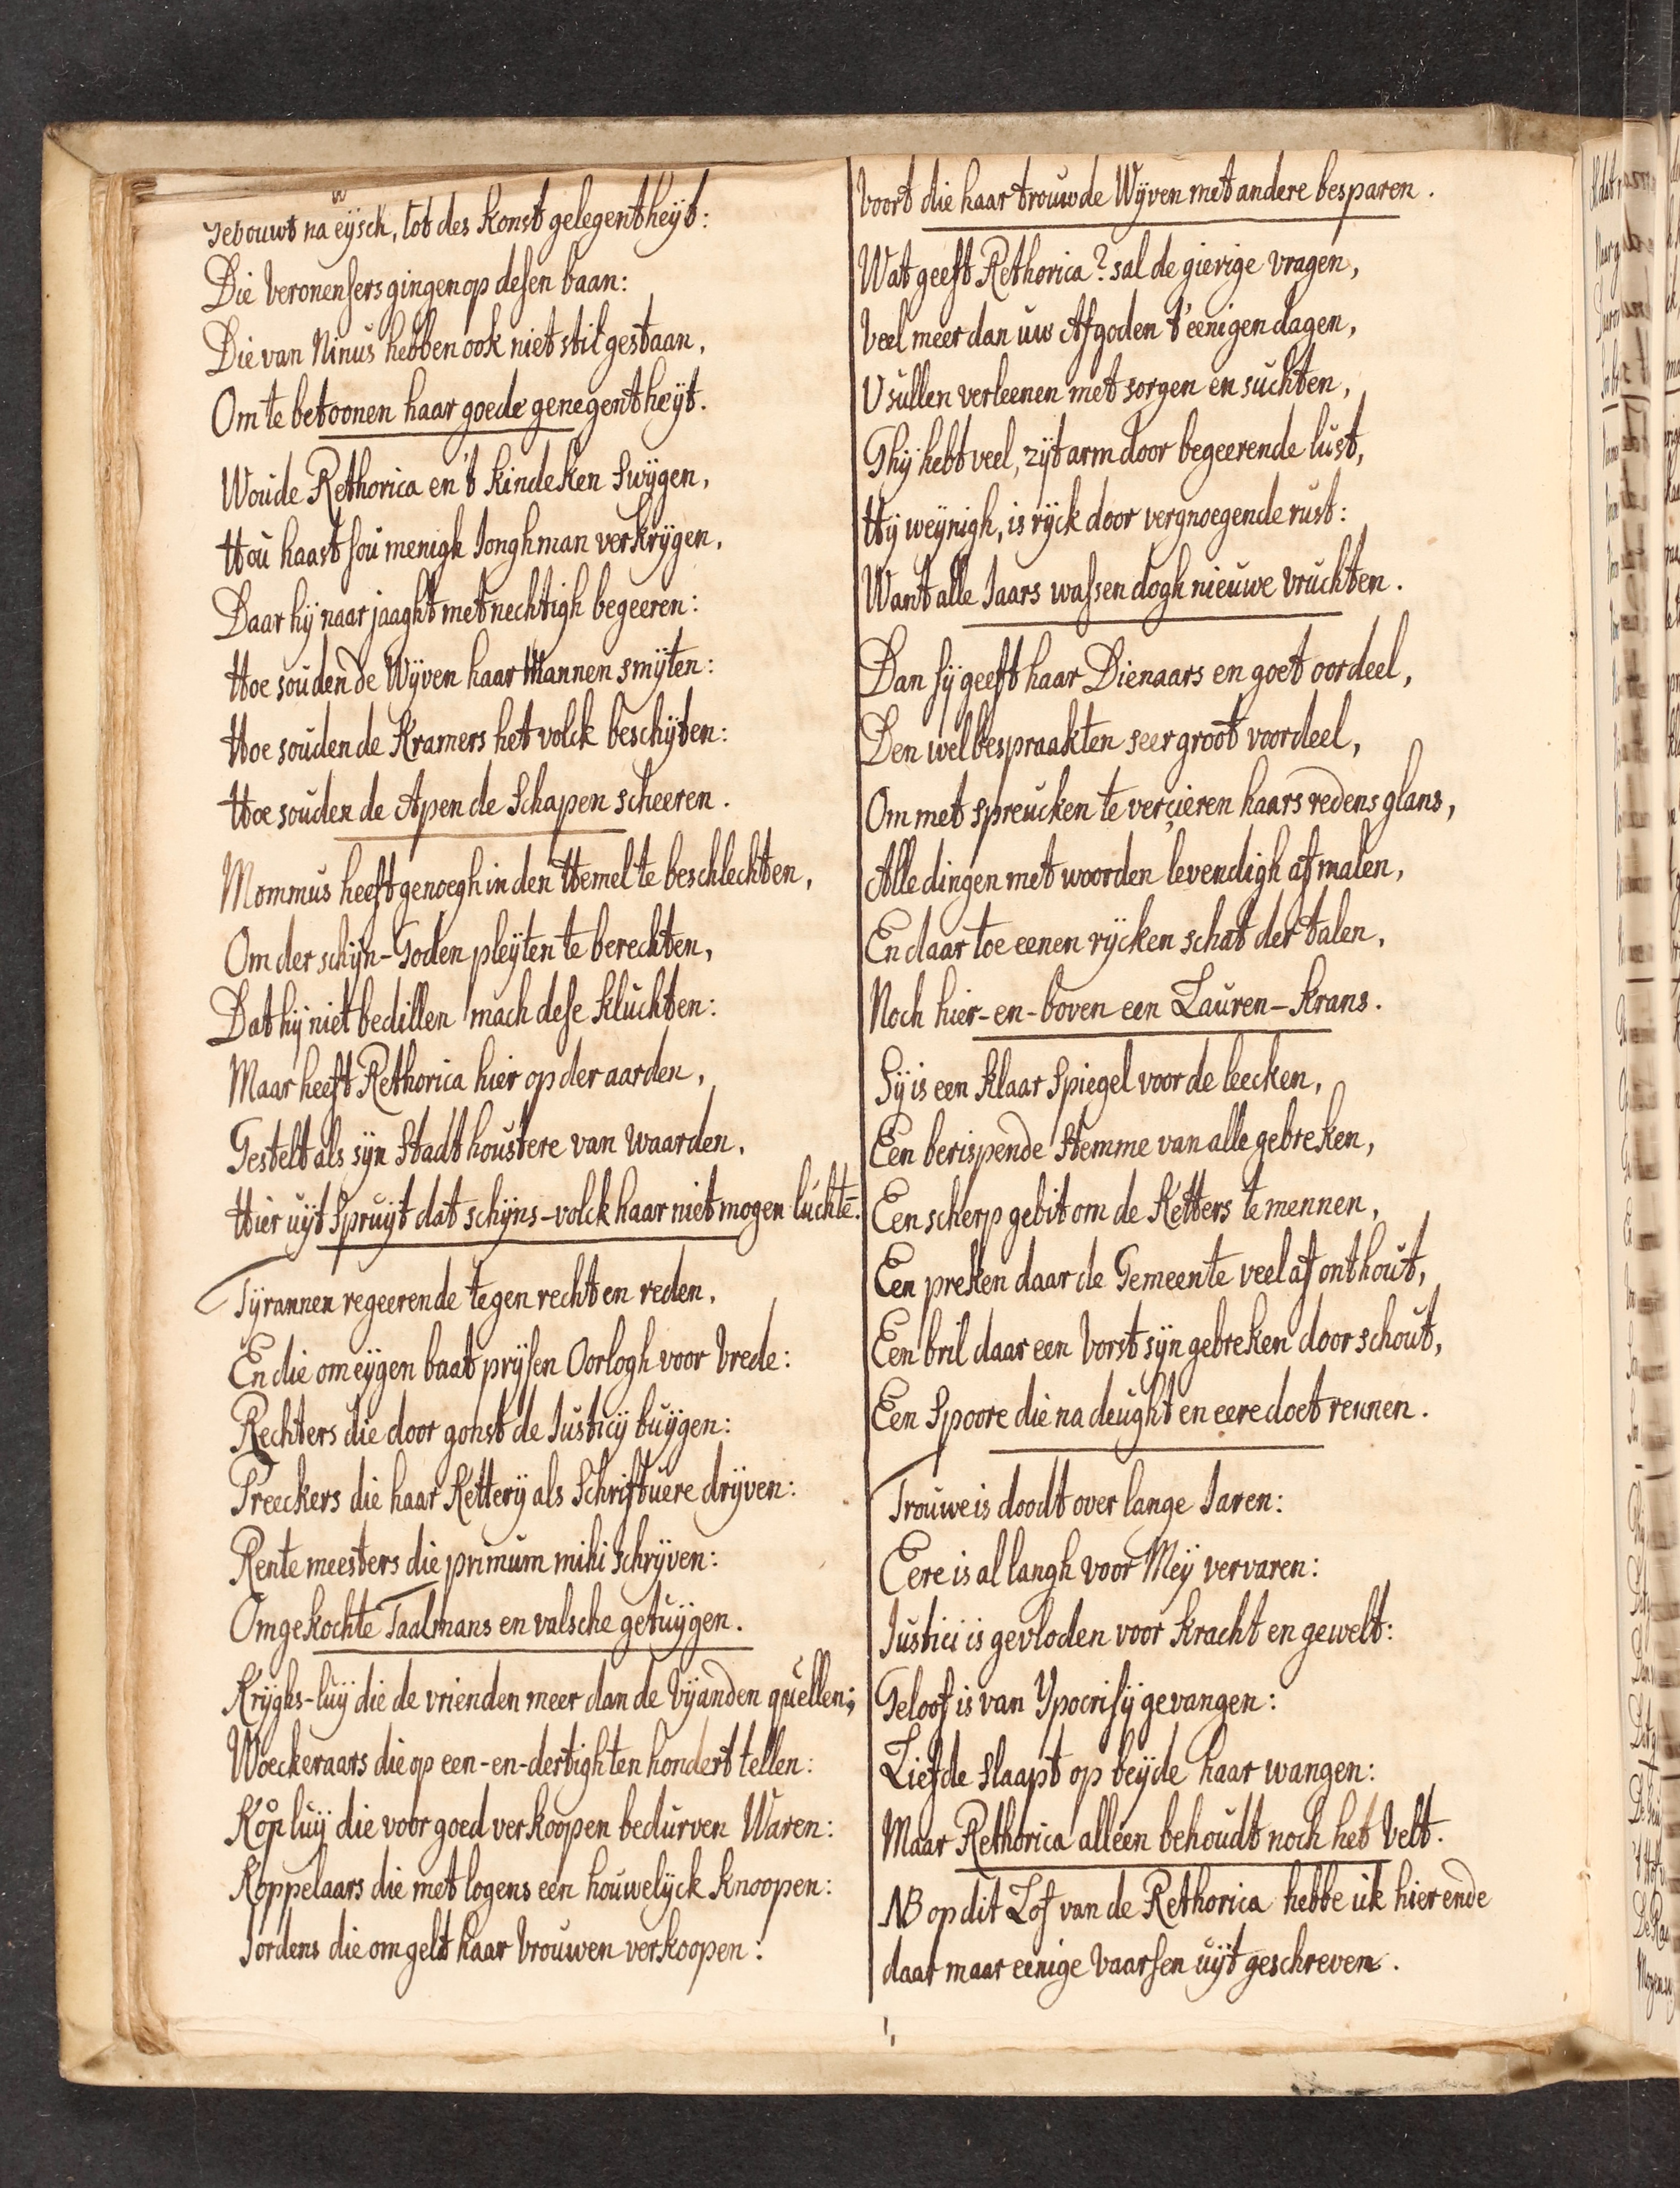 Gebouwt na eijsch, tot des konst gelegentheijt:
Die Veronensers gingen op desen baan:
Die van Ninus hebben ook niet stil gestaan,
Om te betoonen haar goede genegentheijt.
Woude Rethorica en 't kindeken Swijgen,
Hou haast sou menigh Jonghman verkrijgen,
Daar hij naar jaaght met nechtigh begeeren:
Hoe souden de Wijven haar Mannen smijten:
Hoe souden de Kramers het volck beschijten:
Hoe souden de Apen de Schapen scheeren.
Mommus heeft genoegh in den Hemel te beschlechten,
Om der schijn-Goden pleijten te berechten,
Dat hij niet bedillen mach dese kluchten:
Maar heeft Rethorica hier op der aarden,
Gestelt als sijn Stadthoustere van waarden,
Hier uijt Spruijt dat schijns-volck haar niet mogen luchtē.
Tijrannen regeerende tegen recht en reden,
En die om eijgen baat prijsen Oorlogh voor Vrede:
Rechters die door gonst de Justicij buijgen:
Preeckers die haar Ketterij als Schriftuere drijven:
Rentemeesters die primum mihi Schrijven:
Omgekochte Taalmans en valsche getuijgen.
Krijghs-luij die de vrienden meer dan de Vijanden quellen;
Woeckeraars die op een-en-dertigh ten hondert tellen:
Kopluij die voor goed verkoopen bedurven Waren:
Koppelaars die met logens een houwelijck knoopen:
Jordens die om gelt haar Vrouwen verkoopen:
Voort die haar trouwde Wijven met andere besparen.
Wat geeft Rethorica? sal de gierige vragen,
Veel meer dan uw Afgoden t'eenigen dagen,
U sullen verleenen met sorgen en suchten,
Ghij hebt veel, zijt arm door begeerende lust,
Hij weijnigh, is rijck door vergnoegende rust:
Want alle Jaars wassen dogh nieuwe vruchten.
Dan sij geeft haar Dienaars en goet oordeel,
Den welbespraakten seer groot voordeel,
Om met spreucken te verçieren haars redens glans,
Alle dingen met woorden levendigh af malen,
En daar toe eenen rijcken schat der talen,
Noch hier-en-boven een Lauren-krans.
Sij is een klaar Spiegel voor de leecken,
Een berispende Stemme van alle gebreken,
Een scherp gebit om de Ketters te mennen,
Een preken daar de Gemeente veel af onthout,
Een bril daar een Vorst sijn gebreken door schout,
Een Spoore die na deught en eere doet rennen.
Trouwe is doodt over lange Jaren:
Eere is al langh voor Meij vervaren:
Justici is gevloden voor kracht en gewelt:
Geloof is van Ypocrisij gevangen:
Liefde slaapt op beijde haar wangen:
Maar Rethorica alleen behoudt noch het Velt.
NB op dit Lof van de Rethorica hebbe iik hier ende
daar maar eenige vaarsen uijt geschreven.